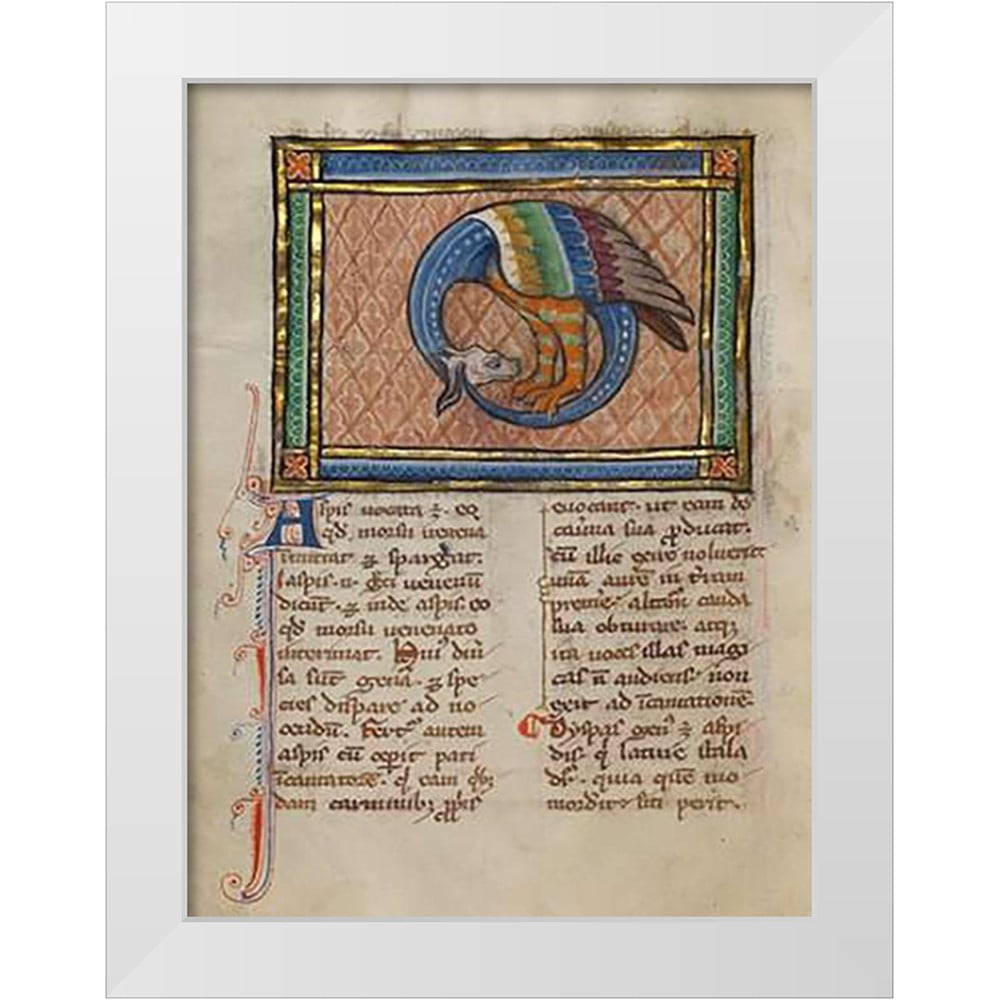 Aspis uocata ÷ eo
qd morsu uenena
īmittat ⁊ spargat.
Iaspis n̄ g̃ci uenenū
dicūt. ⁊ inde aspis. eo
qd morsu uenenato
interimat. Huiꝰ diu͛
sa sūt gen͛a. ⁊ spe
cies dispares ad no
cendū. Fert᷑ autem
aspis cū cep̄it pati
īcantatorē. q̄ eam
dam carminibꝫ
euocant. ut eam de
cau͛na sua ꝓducat.
cū illa exire noluerit
unā aurē in t͛ram
premit. alt͛am cauda
sua obturat. atqꝫ
ita uoces illas magi
cas ñ audiens. non
exit ad īcantationē.
Dyspas genꝰ ÷ aspi
dis. q̄ latine situla
dr̄. quia quē mo
mordit siti perit.